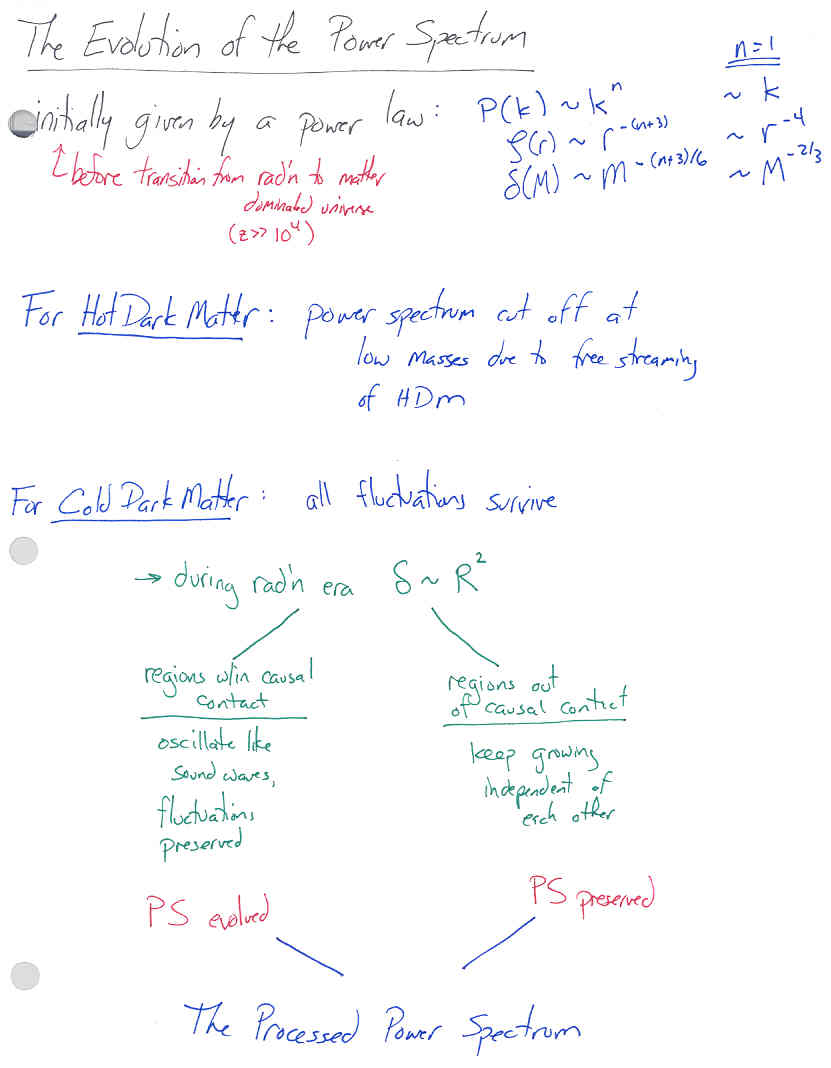 The Evolution of the Power Spectrum
n=1
initially given by a power law: P(k) ~ k^n ~ k
ξ(r) ~ r^-(n+3) ~ r^-4
δ(M) ~ M^-(n+3)/6 ~ M^-2/3
before transition from rad'n to matter
dominated universe
(z>>10^4)
For Hot Dark Matter: power spectrum cut off at
low masses due to free streaming
of HDM
For Cold Dark Matter: all fluctuations survive
→ during rad'n era δ ~ R^2
regions w/in causal
contact
oscillate like
sound waves,
fluctuations
preserved
PS evolved
regions out
of causal contact
keep growing
independent of
each other
PS preserved
The Processed Power Spectrum